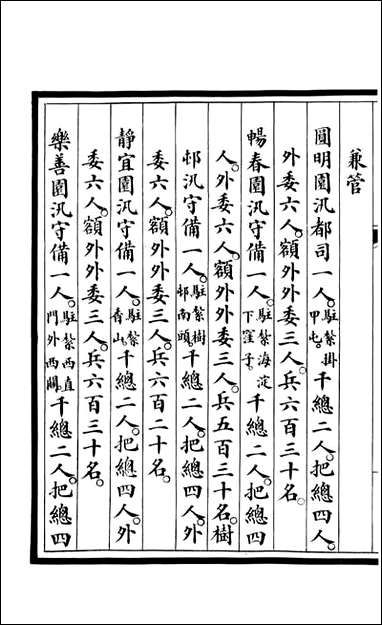 兼管
圓明園汛都司一人。駐紮掛甲屯。千總二人。把總四人。
外委六人。額外外委三人。兵六百三十名。
暢春園汛守備一人。駐紮海淀下窪子。千總二人。把總四
人。外委六人。額外外委三人。兵五百三十名。樹
邨汛守備一人。駐紮樹邨南頭。千總二人。把總四人。外
委六人。額外外委三人。兵六百二十名。
靜宜園汛守備一人。駐紮香山。千總二人。把總四人。外
委六人。額外外委三人。兵六百三十名。
樂善園汛守備一人。駐紮西直門外西關。千總二人。把總四